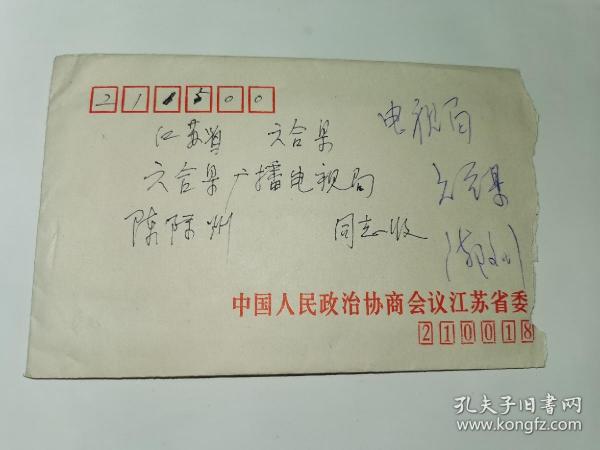 211500
江苏省 六合县
六合县广播电视局
陈际州 同志收
电视局
六合县
中国人民政治协商会议江苏省委
210018
孔夫子旧书网
www.kongfz.com